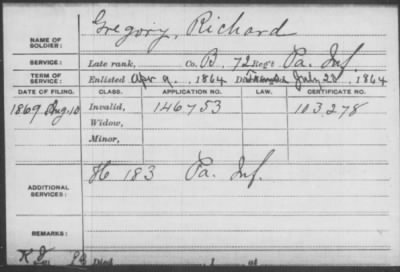 NAME OF SOLDIER: Gregory, Richard
SERVICE: Late rank, Co. B. 72 Reg't Pa. Inf.
TERM OF SERVICE: Enlisted Apr 9, 1864 July 28, 1864
DATE OF FILING. CLASS. APPLICATION NO. LAW. CERTIFICATE NO.
1869 Aug. 10 Invalid, 146753 103,278
Widow,
Minor,
ADDITIONAL SERVICES: H 183 Pa. Inf.
REMARKS:
Died